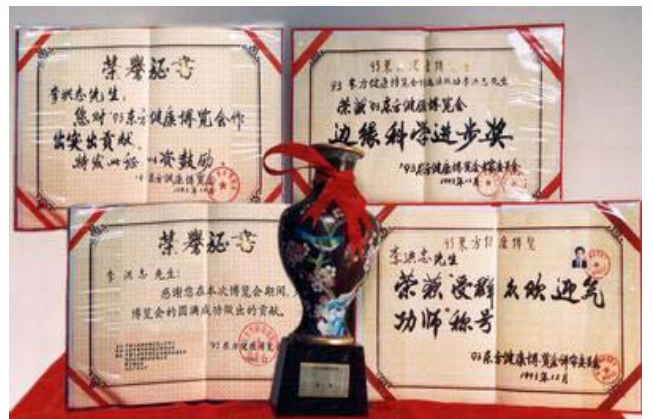 荣誉证书
李洪志先生：
您对'93东方健康博览会作
出突出贡献，
特发此证以资鼓励。
'93东方健康博览会
1993年12月
93东方健康博览
93东方健康博览会
李洪志先生
荣获'93东方健康博览会
边缘科学进步奖
'93东方健康博览会
1993年12月
荣誉证书
李洪志先生：
感谢您在本次博览会期间，
博览会的圆满成功做出的贡献。
'93东方健康博览
93东方健康博览
李洪志先生
荣获"受群众欢迎气
功师"称号
'93东方健康博览会评审委员会
1993年12月